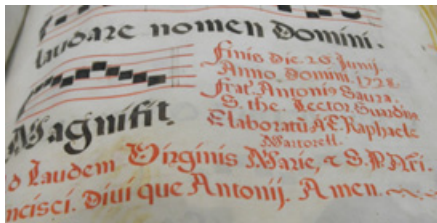 laudare nomen Domini.
Finis die. 26 Junij.
Anno. Domini. 172
Frat Antonio Saura.
S. the. Lector.
Elaboratũ A.E. Raphaele
Martorell.
Magnifit
d Laudem Virginis Marie, & S. P.
ncisci. Diui que Antonij. Amen.